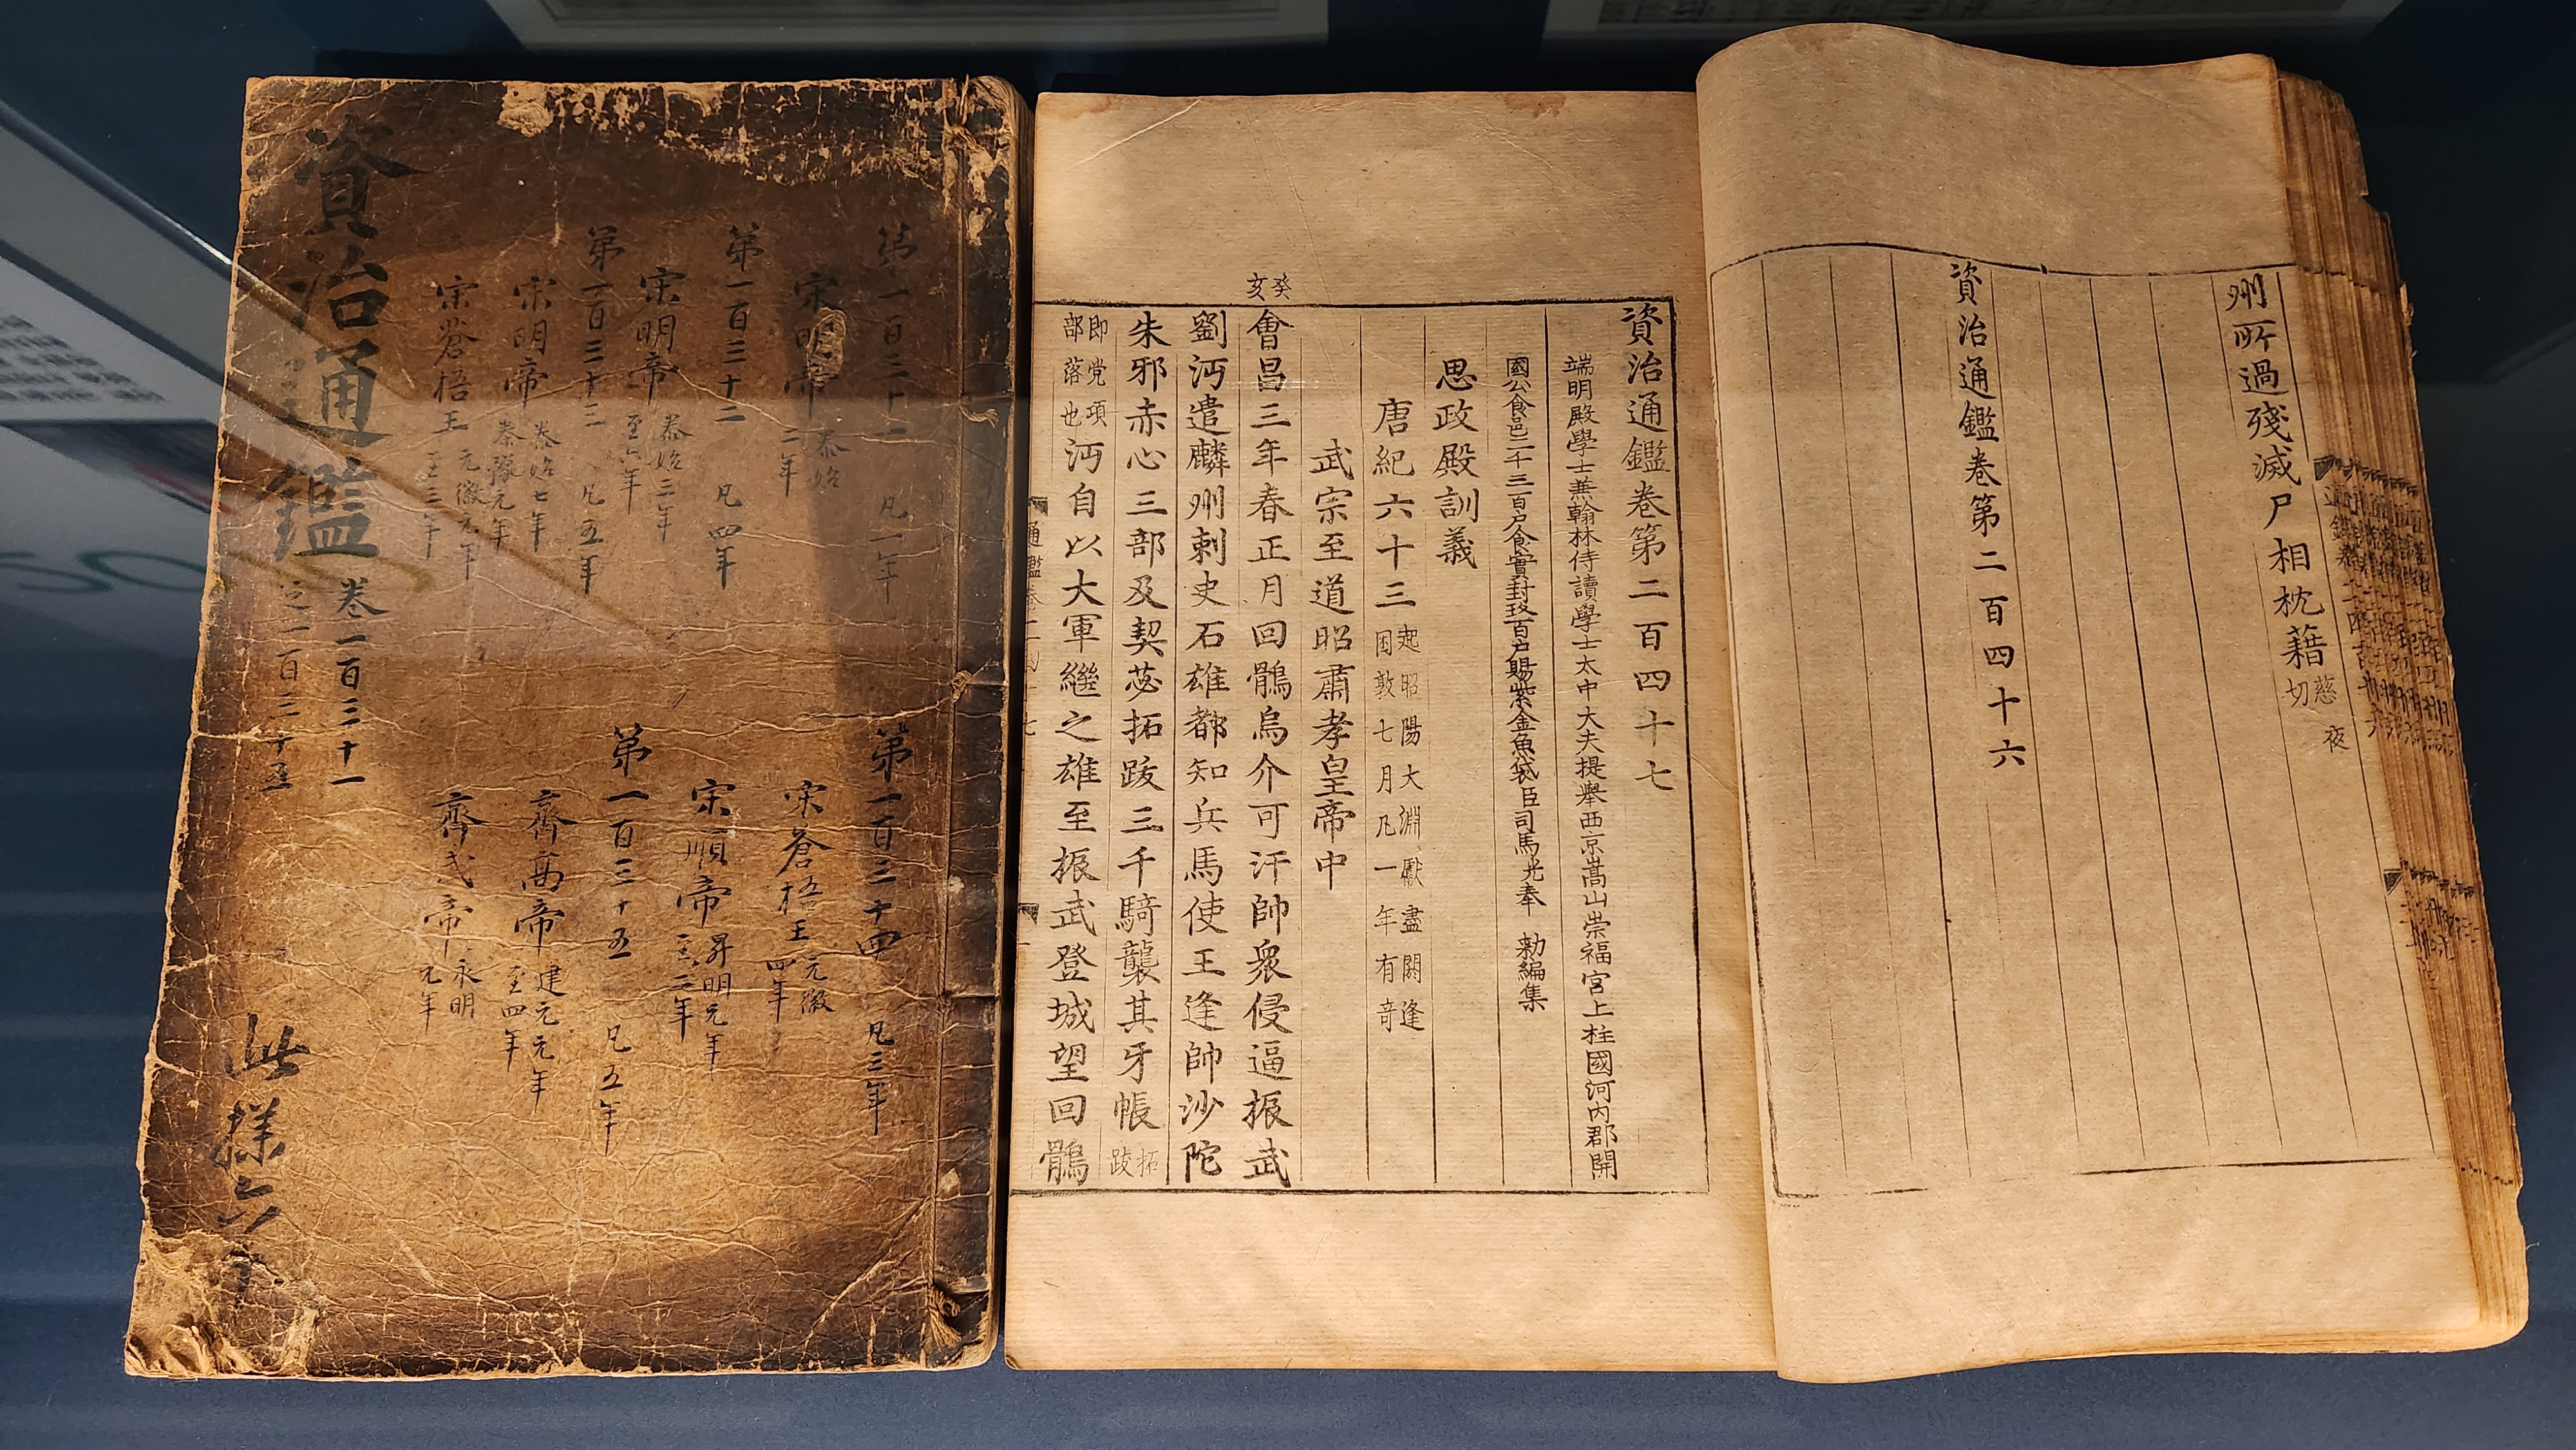 州所過殘滅尸相枕藉慈夜切
資治通鑑卷第二百四十六
資治通鑑卷第二百四十七
端明殿學士蒹翰林侍讀學士太中大夫提舉西京嵩山崇福宮上柱國河內郡開
國公食邑二千三百户食實封玖百户賜紫金魚袋臣司馬光奉 勑編集
思政殿訓義
唐紀六十三起昭陽大淵獻盡閼逢困敦七月凡一年有奇
武宗至道昭肅孝皇帝中
癸亥
會昌三年春正月回鶻烏介可汗帥衆侵逼振武
劉沔遣麟州刺史石雄都知兵馬使王逢帥沙陀
朱邪赤心三部及契苾拓跋三千騎襲其牙帳拓跋
即党項部落也沔自以大軍繼之雄至振武登城望回鶻
第一百三十一 凡一年
宋明帝泰始二年
第一百三十二 凡四年
宋明帝泰始三年至六年
第一百三十三 凡五年
宋明帝泰始七年泰豫元年
宋蒼梧王元徽元年至三年
第一百三十四 凡三年
宋蒼梧王元徽四年
宋順帝昇明元年至二年
第一百三十五 凡五年
齊高帝建元元年至四年
齊武帝永明元年
資治通鑑卷一百三十一之一百三十五